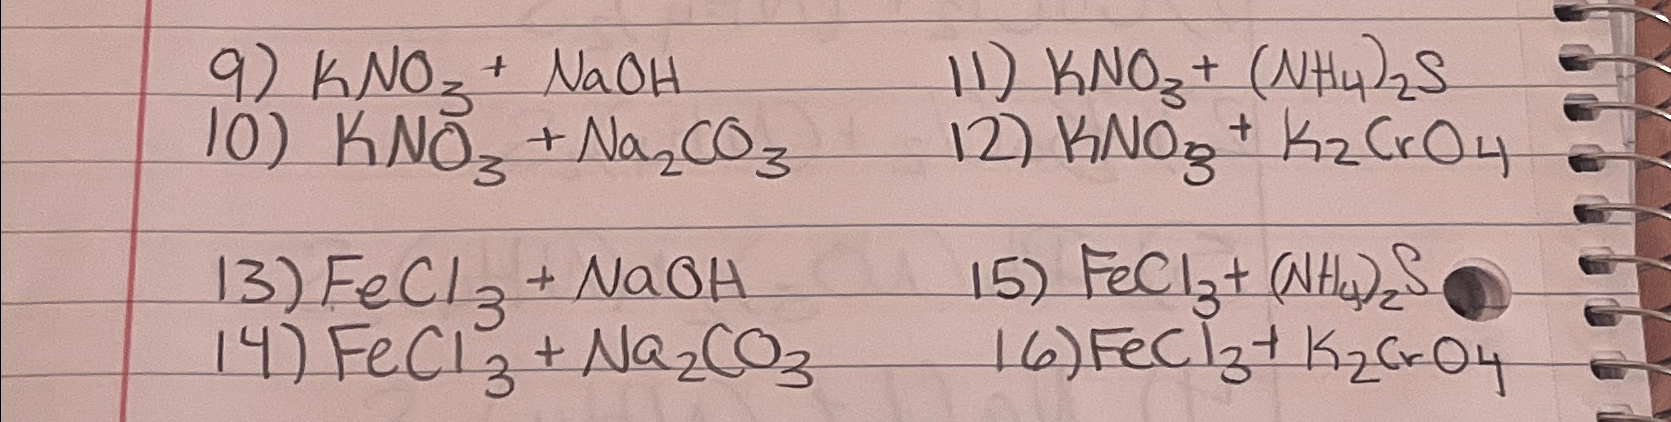 9) KNO₃ + NaOH
10) KNO₃ + Na₂CO₃
11) KNO₃ + (NH₄)₂S
12) KNO₃ + K₂CrO₄
13) FeCl₃ + NaOH
14) FeCl₃ + Na₂CO₃
15) FeCl₃ + (NH₄)₂S
16) FeCl₃ + K₂CrO₄